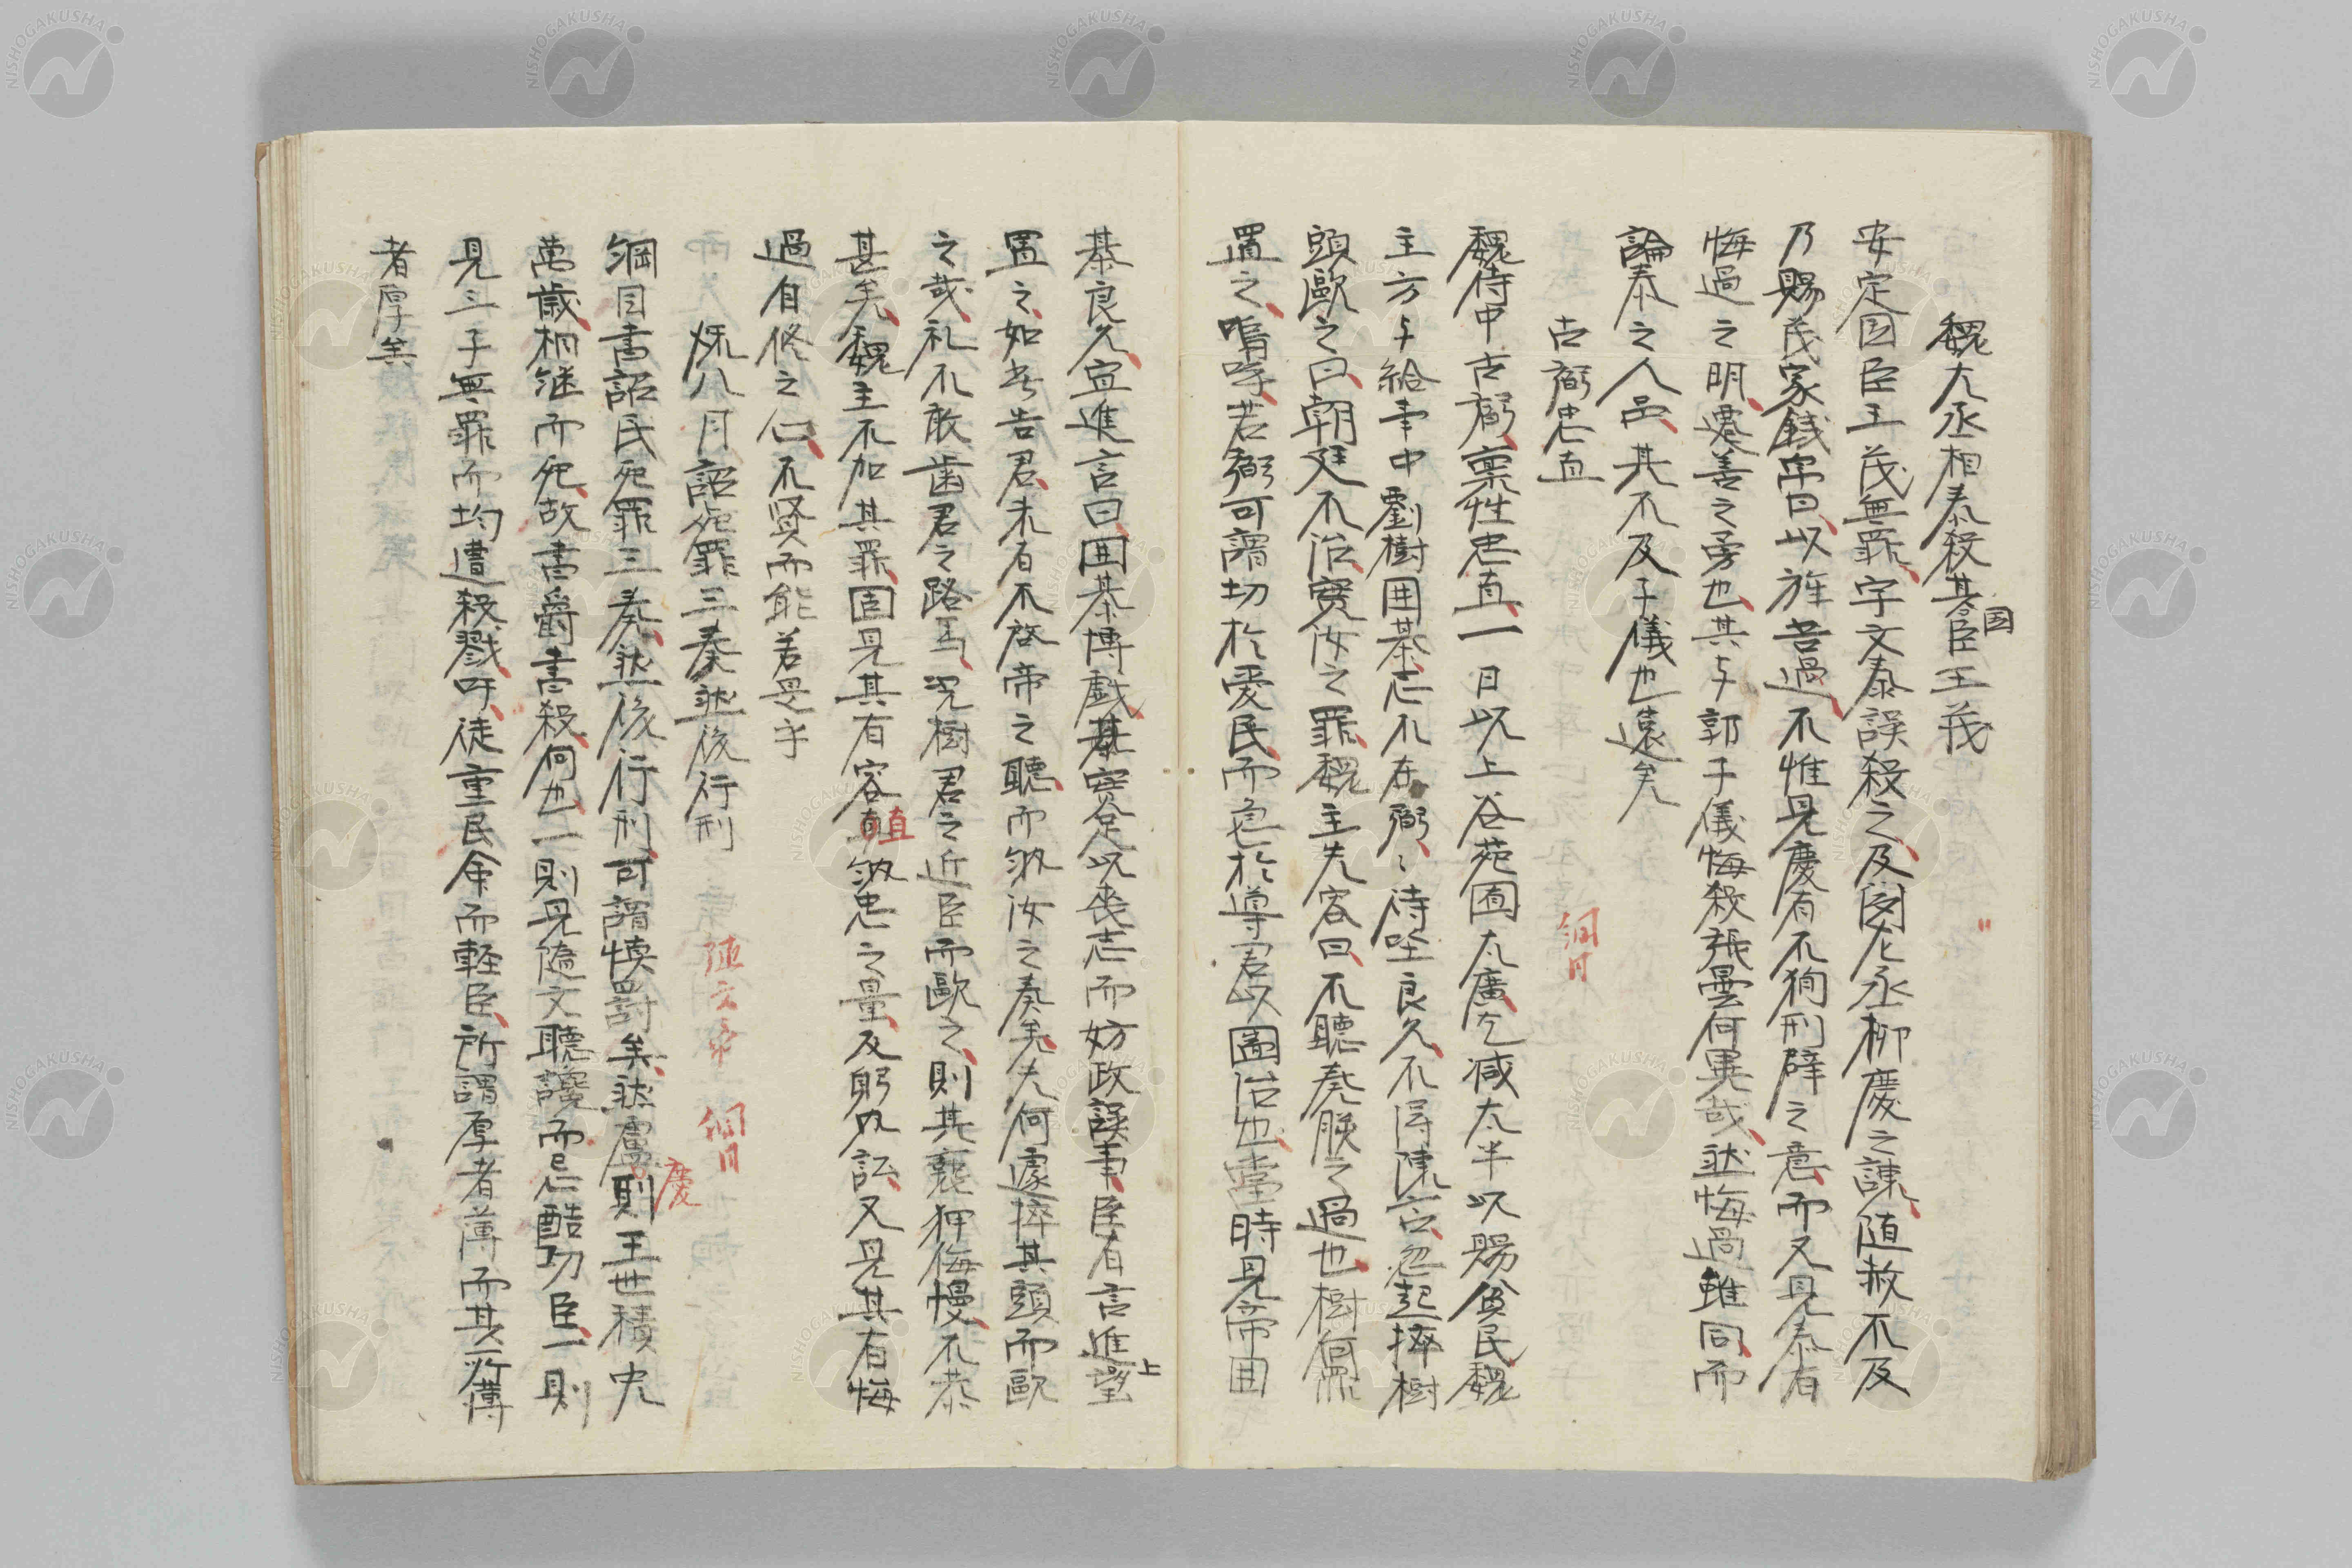 魏大丞相泰殺其國臣王茂
安定国臣王茂無罪宇文泰誤殺之及閲左丞柳慶之諌随赦不及
乃賜茂家銭帛曰以旌吾過不惟見慶有不狥刑辟之意而又見泰有
悔過之明遷善之勇也其与郭子儀悔殺張曇何異哉然悔過雖同而
論泰之人品其不及子儀也遠矣
古弼忠直
仝日
魏侍中古弼稟性忠直一日以上谷苑囿太廣乞减太半以賜貧民魏
主方与給事中劉樹囲碁志不在弼〻侍坐良久不得陳言忽起捽樹
頭歐之曰朝廷不治實汝之罪魏主失容曰不聽奏朕之過也樹何罪
置之嗚呼若弼可謂切於愛民而急於導君以圖治也當時見帝囲
碁良久宜進言曰囲碁博戯其實足以喪志而妨政誤事臣有言進望上
置之如此告君未有不啓帝之聽而納汝之奏矣夫何遽捽其頭而歐
之哉礼不敢歯君之路馬况樹君之近臣而歐之則其褻狎侮慢不恭
甚矣魏主不加其罪固見其有容直納忠之量及躬以訟又見其有悔
直
過自修之仁不賢而能若是乎
秋八月詔死罪三奏然後行刑
陏文帝 仝日
綱目書詔民死罪三奏然後行刑可謂慎罰矣然盧則王世積史
慶
萬歳相継而死故書爵書殺何也一則見隨文聽讒而忌酷功臣一則
見三子無罪而均遭殺戮吁徒重民命而軽臣所謂厚者薄而其所薄
者厚矣